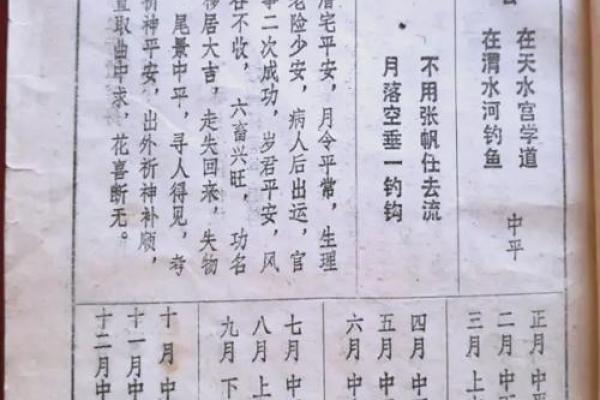 在天水宫学道
在渭水河钓鱼
中平
不用张帆仕去流
月落空垂一钓钩
宅平安，月令平常，生理
老险少安，病人后出运，官
事二次成功，岁君平安，风
谷不收，六畜兴旺，功名
移居大吉，走失回来，失物
尾景中平，寻人得见，考
祈神平安，出外祈神补顺，
直取曲中求，花喜断无。
正月 中平
二月 中
三月 上
四月 中
五月 中
六月 中
七月 中
八月 上
九月 下
十月 中
十一月 中
十二月 中